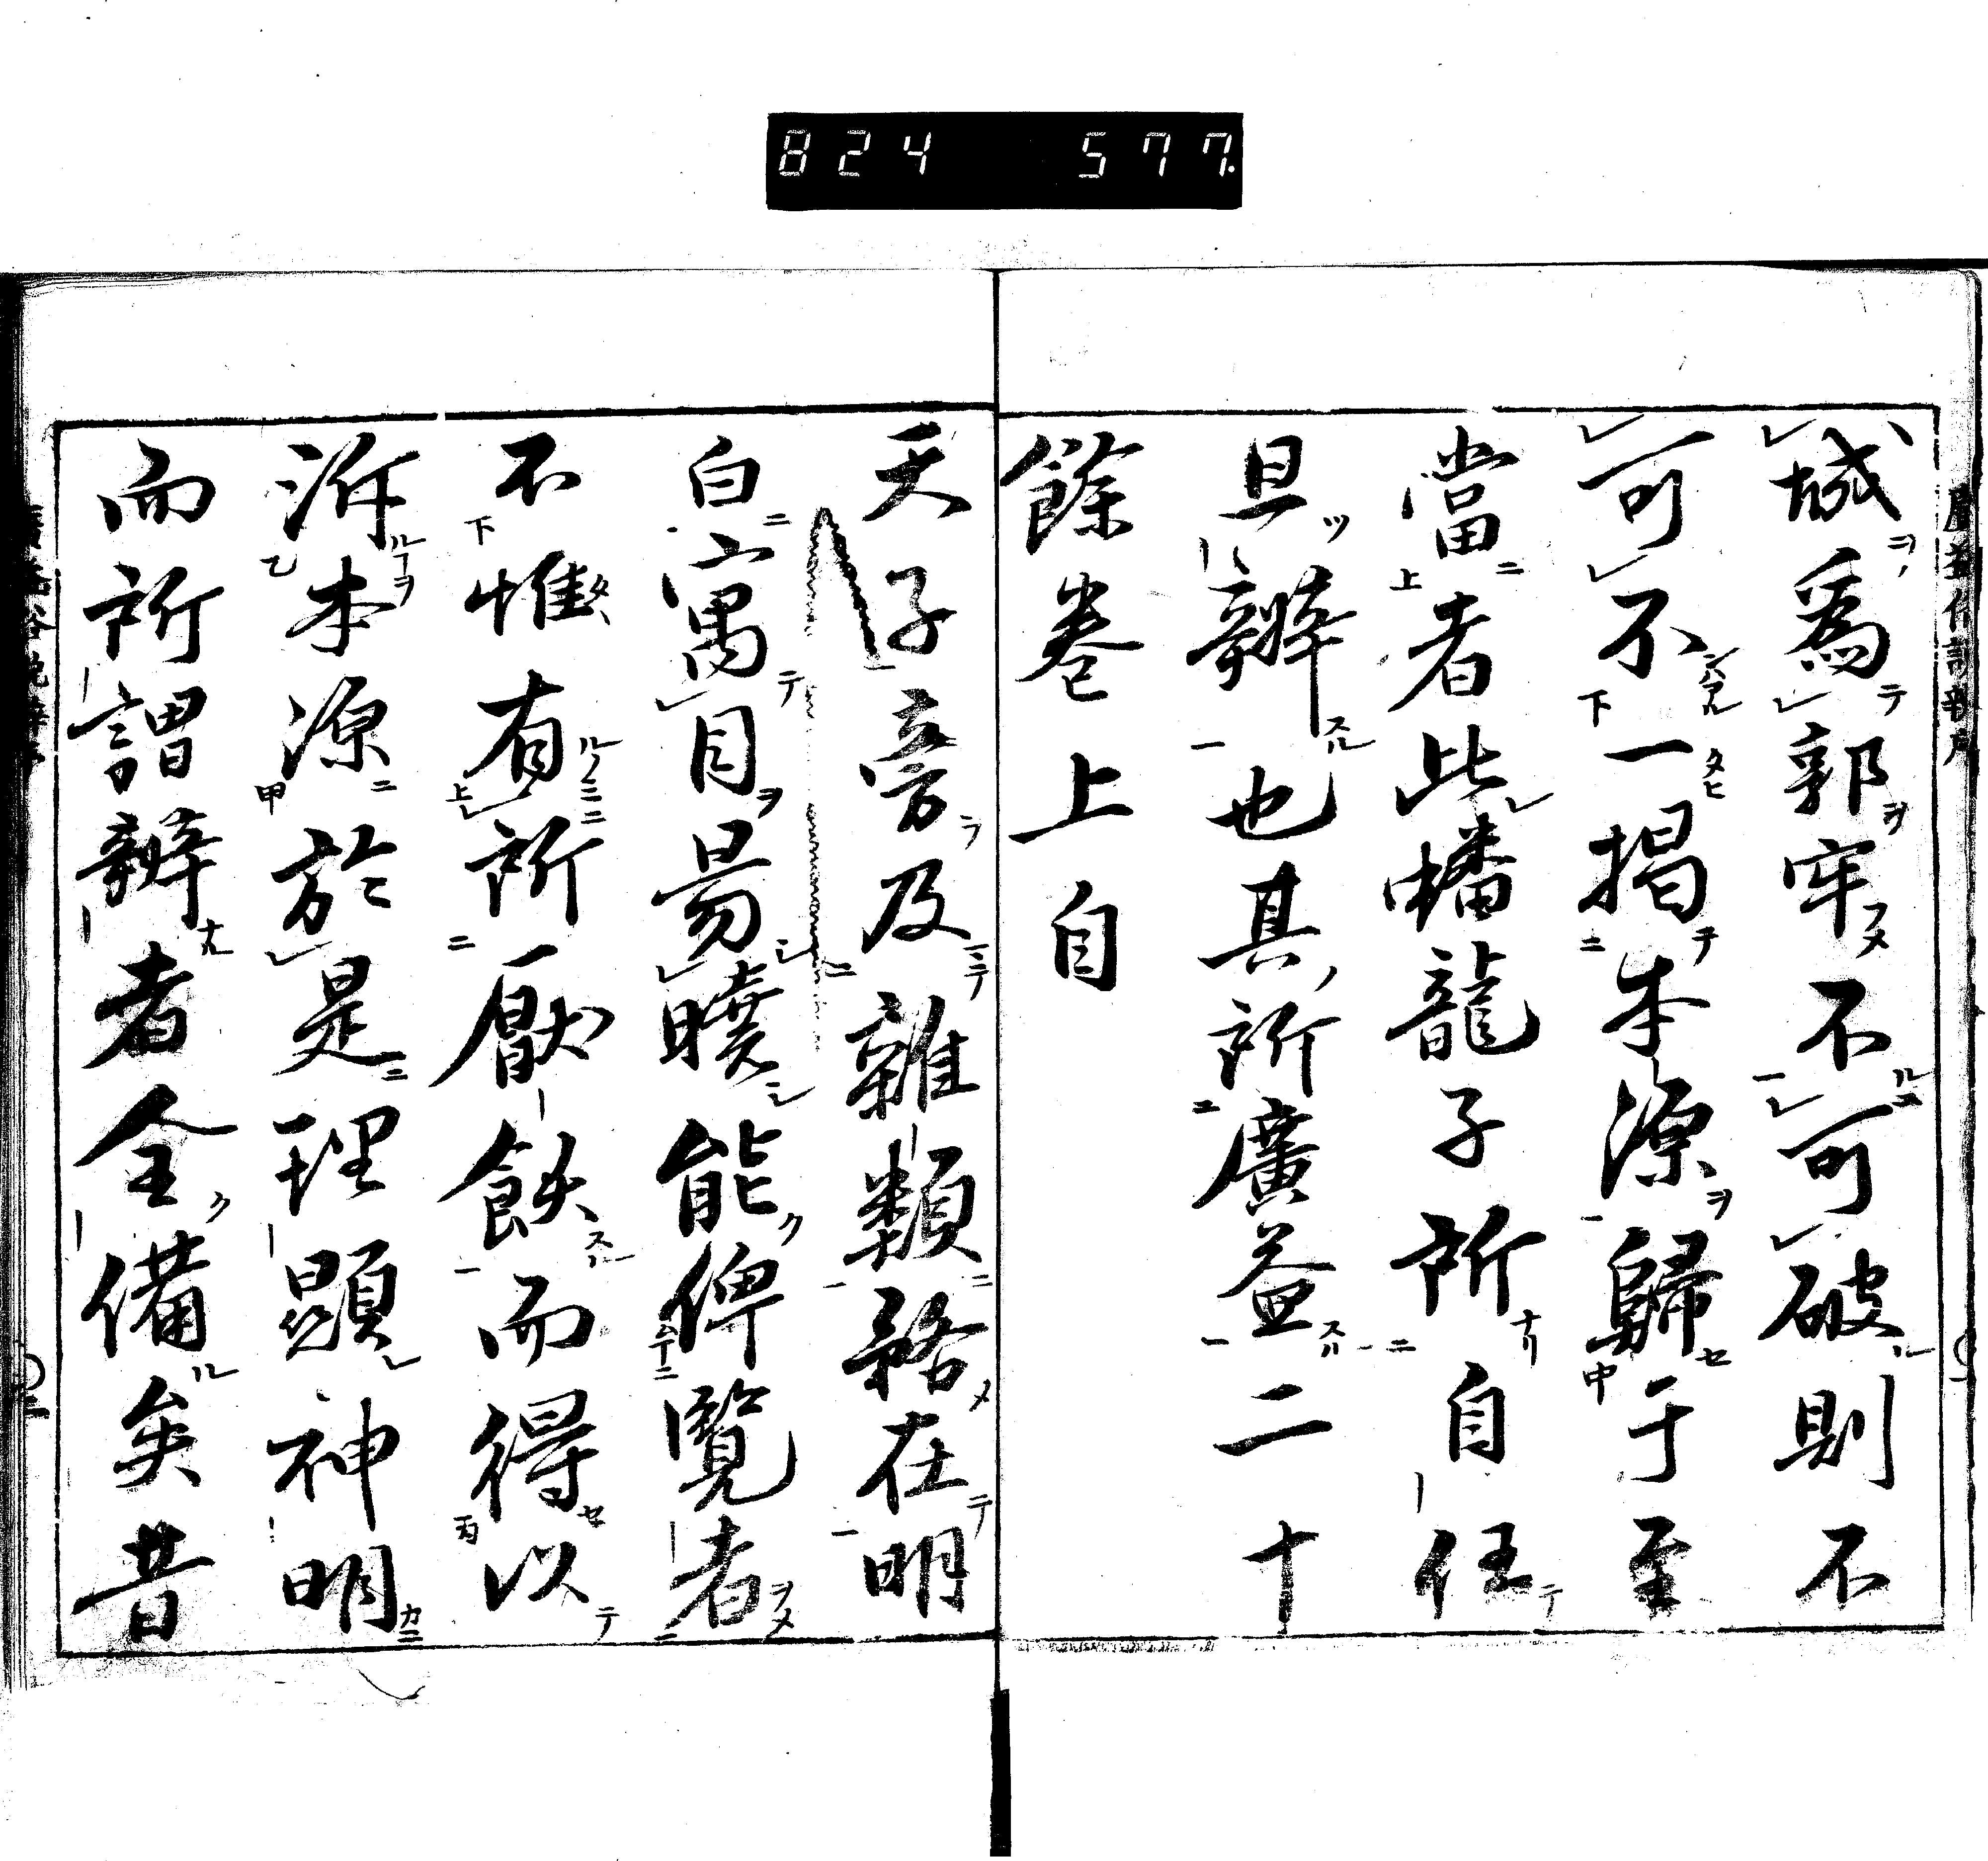 824 577.
城為郭牢不可破則不
可不一揭本源歸于至
當者此蟠龍子所自任
且辨也其所廣益二十
餘卷上自
天子旁及雜類務在明
白寓目易曉能俾覽者
不惟有所厭飫而得以
泝本源於是理顯神明
而所謂辨者全備矣昔